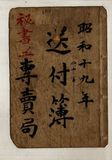 昭和十九年
送付簿
秘書ニ
專賣局